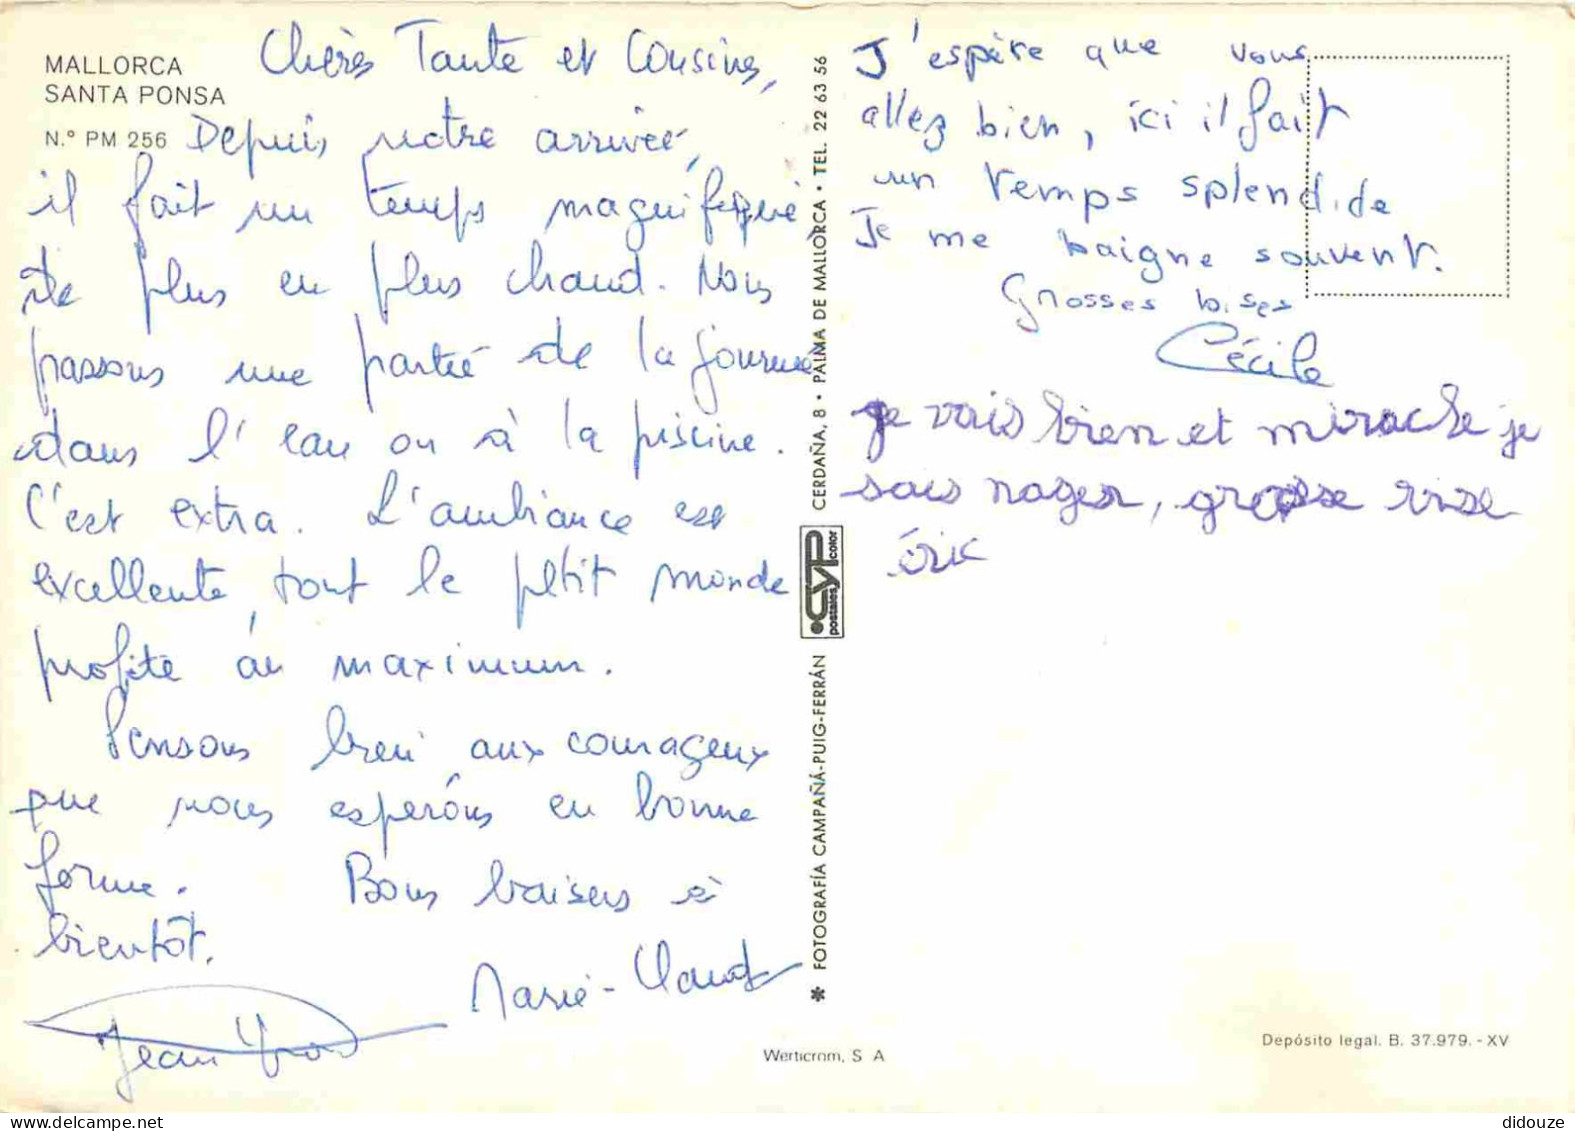 MALLORCA
SANTA PONSA
N.° PM 256
Chères Tante et Cousines,
Depuis notre arrivée,
il fait un temps magnifique,
de plus en plus chaud. Nous
passons une partie de la journée
dans l'eau ou à la piscine.
C'est extra. L'ambiance est
excellente, tout le petit monde
profite au maximum.
Pensons bien aux courageux
que nous espérons en bonne
forme. Bons baisers à
bientôt.
Marie-Claude
Jean Yves
FOTOGRAFÍA CAMPAÑÁ-PUIG-FERRÁN
postales color CYP
CERDAÑA, 8 • PALMA DE MALLORCA • TEL. 22 63 56
J'espère que vous
allez bien, ici il fait
un temps splendide
Je me baigne souvent.
Grosses bises
Cécile
je vais bien et miracle je
sais nager, grosse bise
éric
Werticrom, S A
Depósito legal. B. 37.979. - XV
didouze